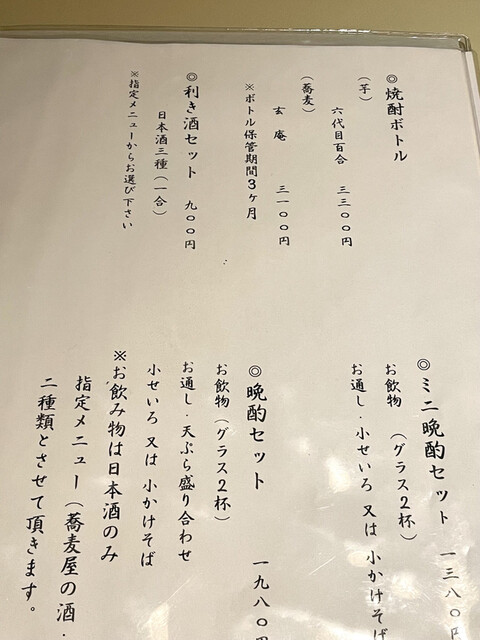 ◎焼酎ボトル
(芋)
六代目百合 三三〇〇円
(蕎麦)
玄庵 三一〇〇円
※ボトル保管期間3ヶ月
◎利き酒セット 九〇〇円
日本酒三種(一合)
※指定メニューからお選び下さい
◎ミニ晩酌セット 一三八〇
お飲物 (グラス2杯)
お通し・小せいろ 又は 小かけそば
◎晩酌セット 一九八〇円
お飲物 (グラス2杯)
お通し・天ぷら盛り合わせ
小せいろ 又は 小かけそば
※お飲み物は日本酒のみ
指定メニュー(蕎麦屋の酒・
二種類とさせて頂きます。